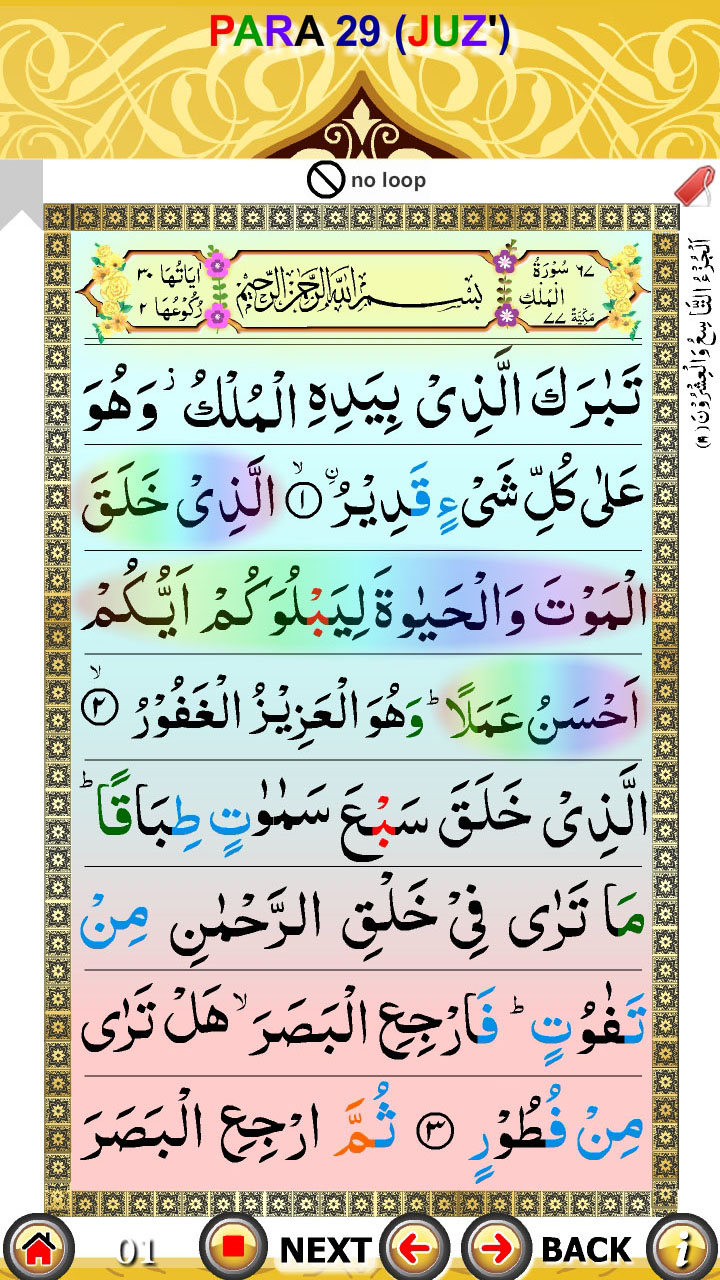 PARA 29 (JUZ')
no loop
٦٧ سُوْرَةُ الْمُلْكِ مَكِّيَّةٌ ٧٧
بِسْمِ اللّٰهِ الرَّحْمٰنِ الرَّحِيْمِ
اٰيَاتُهَا ٣٠ رُكُوْعُهَا ٢
تَبٰرَكَ الَّذِىْ بِيَدِهِ الْمُلْكُ ز وَهُوَ
عَلٰى كُلِّ شَىْءٍ قَدِيْرُ ۨ ۙ ﴿١﴾ الَّذِىْ خَلَقَ
الْمَوْتَ وَالْحَيٰوةَ لِيَبْلُوَكُمْ اَيُّكُمْ
اَحْسَنُ عَمَلًا ؕ وَهُوَ الْعَزِيْزُ الْغَفُوْرُ ۙ ﴿٢﴾
الَّذِىْ خَلَقَ سَبْعَ سَمٰوٰتٍ طِبَاقًا ؕ
مَا تَرٰى فِىْ خَلْقِ الرَّحْمٰنِ مِنْ
تَفٰوُتٍ ؕ فَارْجِعِ الْبَصَرَ ۙ هَلْ تَرٰى
مِنْ فُطُوْرٍ ﴿٣﴾ ثُمَّ ارْجِعِ الْبَصَرَ
اَلْجُزْءُ التَّاسِعُ وَالْعِشْرُوْنَ (٢٩)
01
NEXT
BACK
i